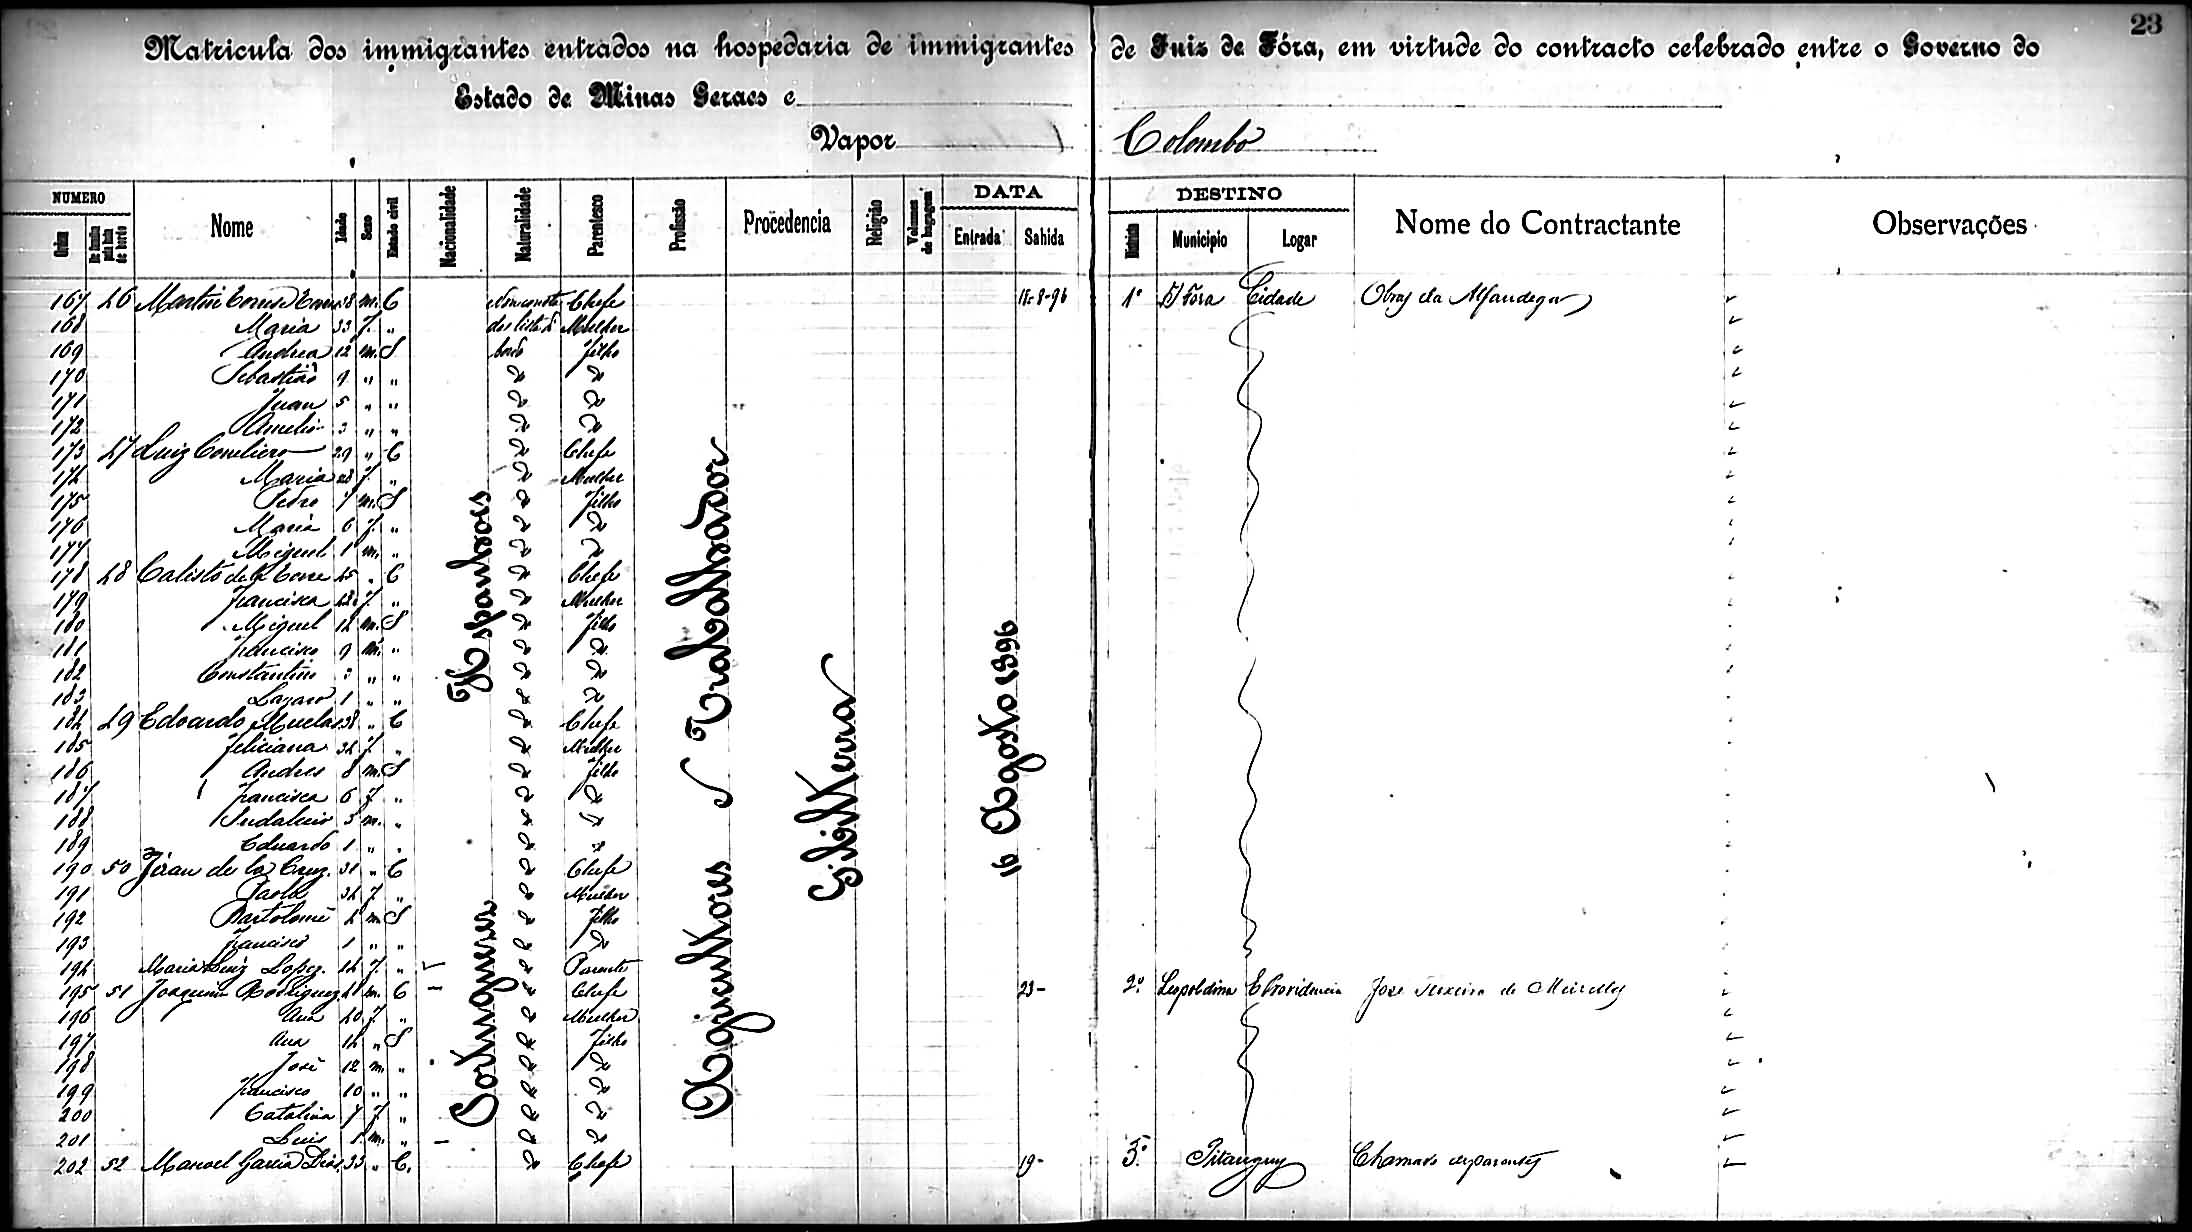 23
Matricula dos immigrantes entrados na hospedaria de immigrantes de Juiz de Fóra, em virtude do contracto celebrado entre o Governo do
Estado de Minas Geraes e
Vapor Colombo
NUMERO DATA DESTINO
Ordem De familia pela lista de bordo Nome Idade Sexo Estado civil Nacionalidade Naturalidade Parentesco Profissão Procedencia Religião Volumes de bagagem Entrada Sahida Districto Municipio Logar Nome do Contractante Observações
167 46 Martin 38 m. C Não consta Chefe 18-8-96 1º J Fora Cidade Obras da Alfandega
168 Maria 33 f. " das listas de Mulher
169 Andrea 12 m. S bordo filho
170 Sebastião 9 " "
171 Juan 5 " "
172 Amelio 3 " "
173 47 Luiz 29 " C Chefe
174 Maria 28 f. " Mulher
175 Pedro 7 m. S filho
176 Maria 6 f. "
177 Miguel 1 m. "
178 48 Calisto de la Torre 45 " C Chefe
179 Francisca 42 f. " Mulher
180 Miguel 14 m. S filho
181 Francisco 9 m. "
182 Constantino 3 " "
183 Lazaro 1 " "
184 49 Edoardo Muelas 38 " C Chefe
185 Feliciana 34 f. " Mulher
186 Andres 8 m. S filho
187 Francisca 6 f "
188 Indalecio 3 m. "
189 Eduardo 1 " "
190 50 Juan de la Cruz. 31 " C Chefe
191 Paola 34 f. " Mulher
192 Bartolomé 4 m S filho
193 Francisco 1 " "
194 Maria Luiz Lopez. 14 f. " Parente
195 51 Joaquim Rodriguez 41 m. C Chefe 23- 2º Leopoldina E Providencia José Teixeira de Meirelles
196 Ana 40 f. " Mulher
197 Ana 14 " S filho
198 José 12 m. "
199 Francisco 10 " "
200 Catalina 7 f "
201 Luis 1 m. "
202 52 Manoel Garcia Dias 33 " C. Chefe 19- 5º Pitanguy Chamado de parentes
Hespanhoes
Portuguezes
Agricultores e Trabalhador
Gibilterra
16 Agosto 1896